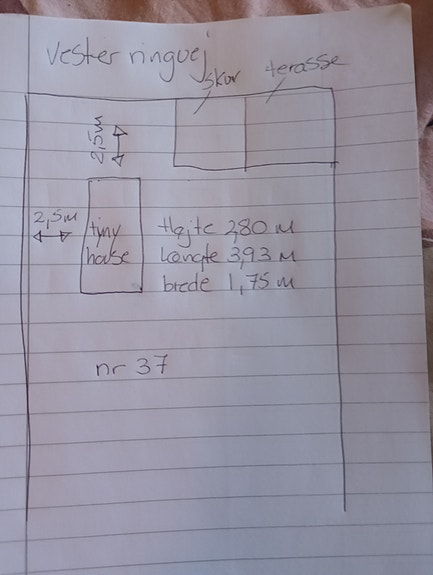 Vester ringvej
skur
terasse
2,5 M
2,5 M
tiny
house
Højte 2,80 M
Längte 3,93 M
brede 1,75 M
nr 37